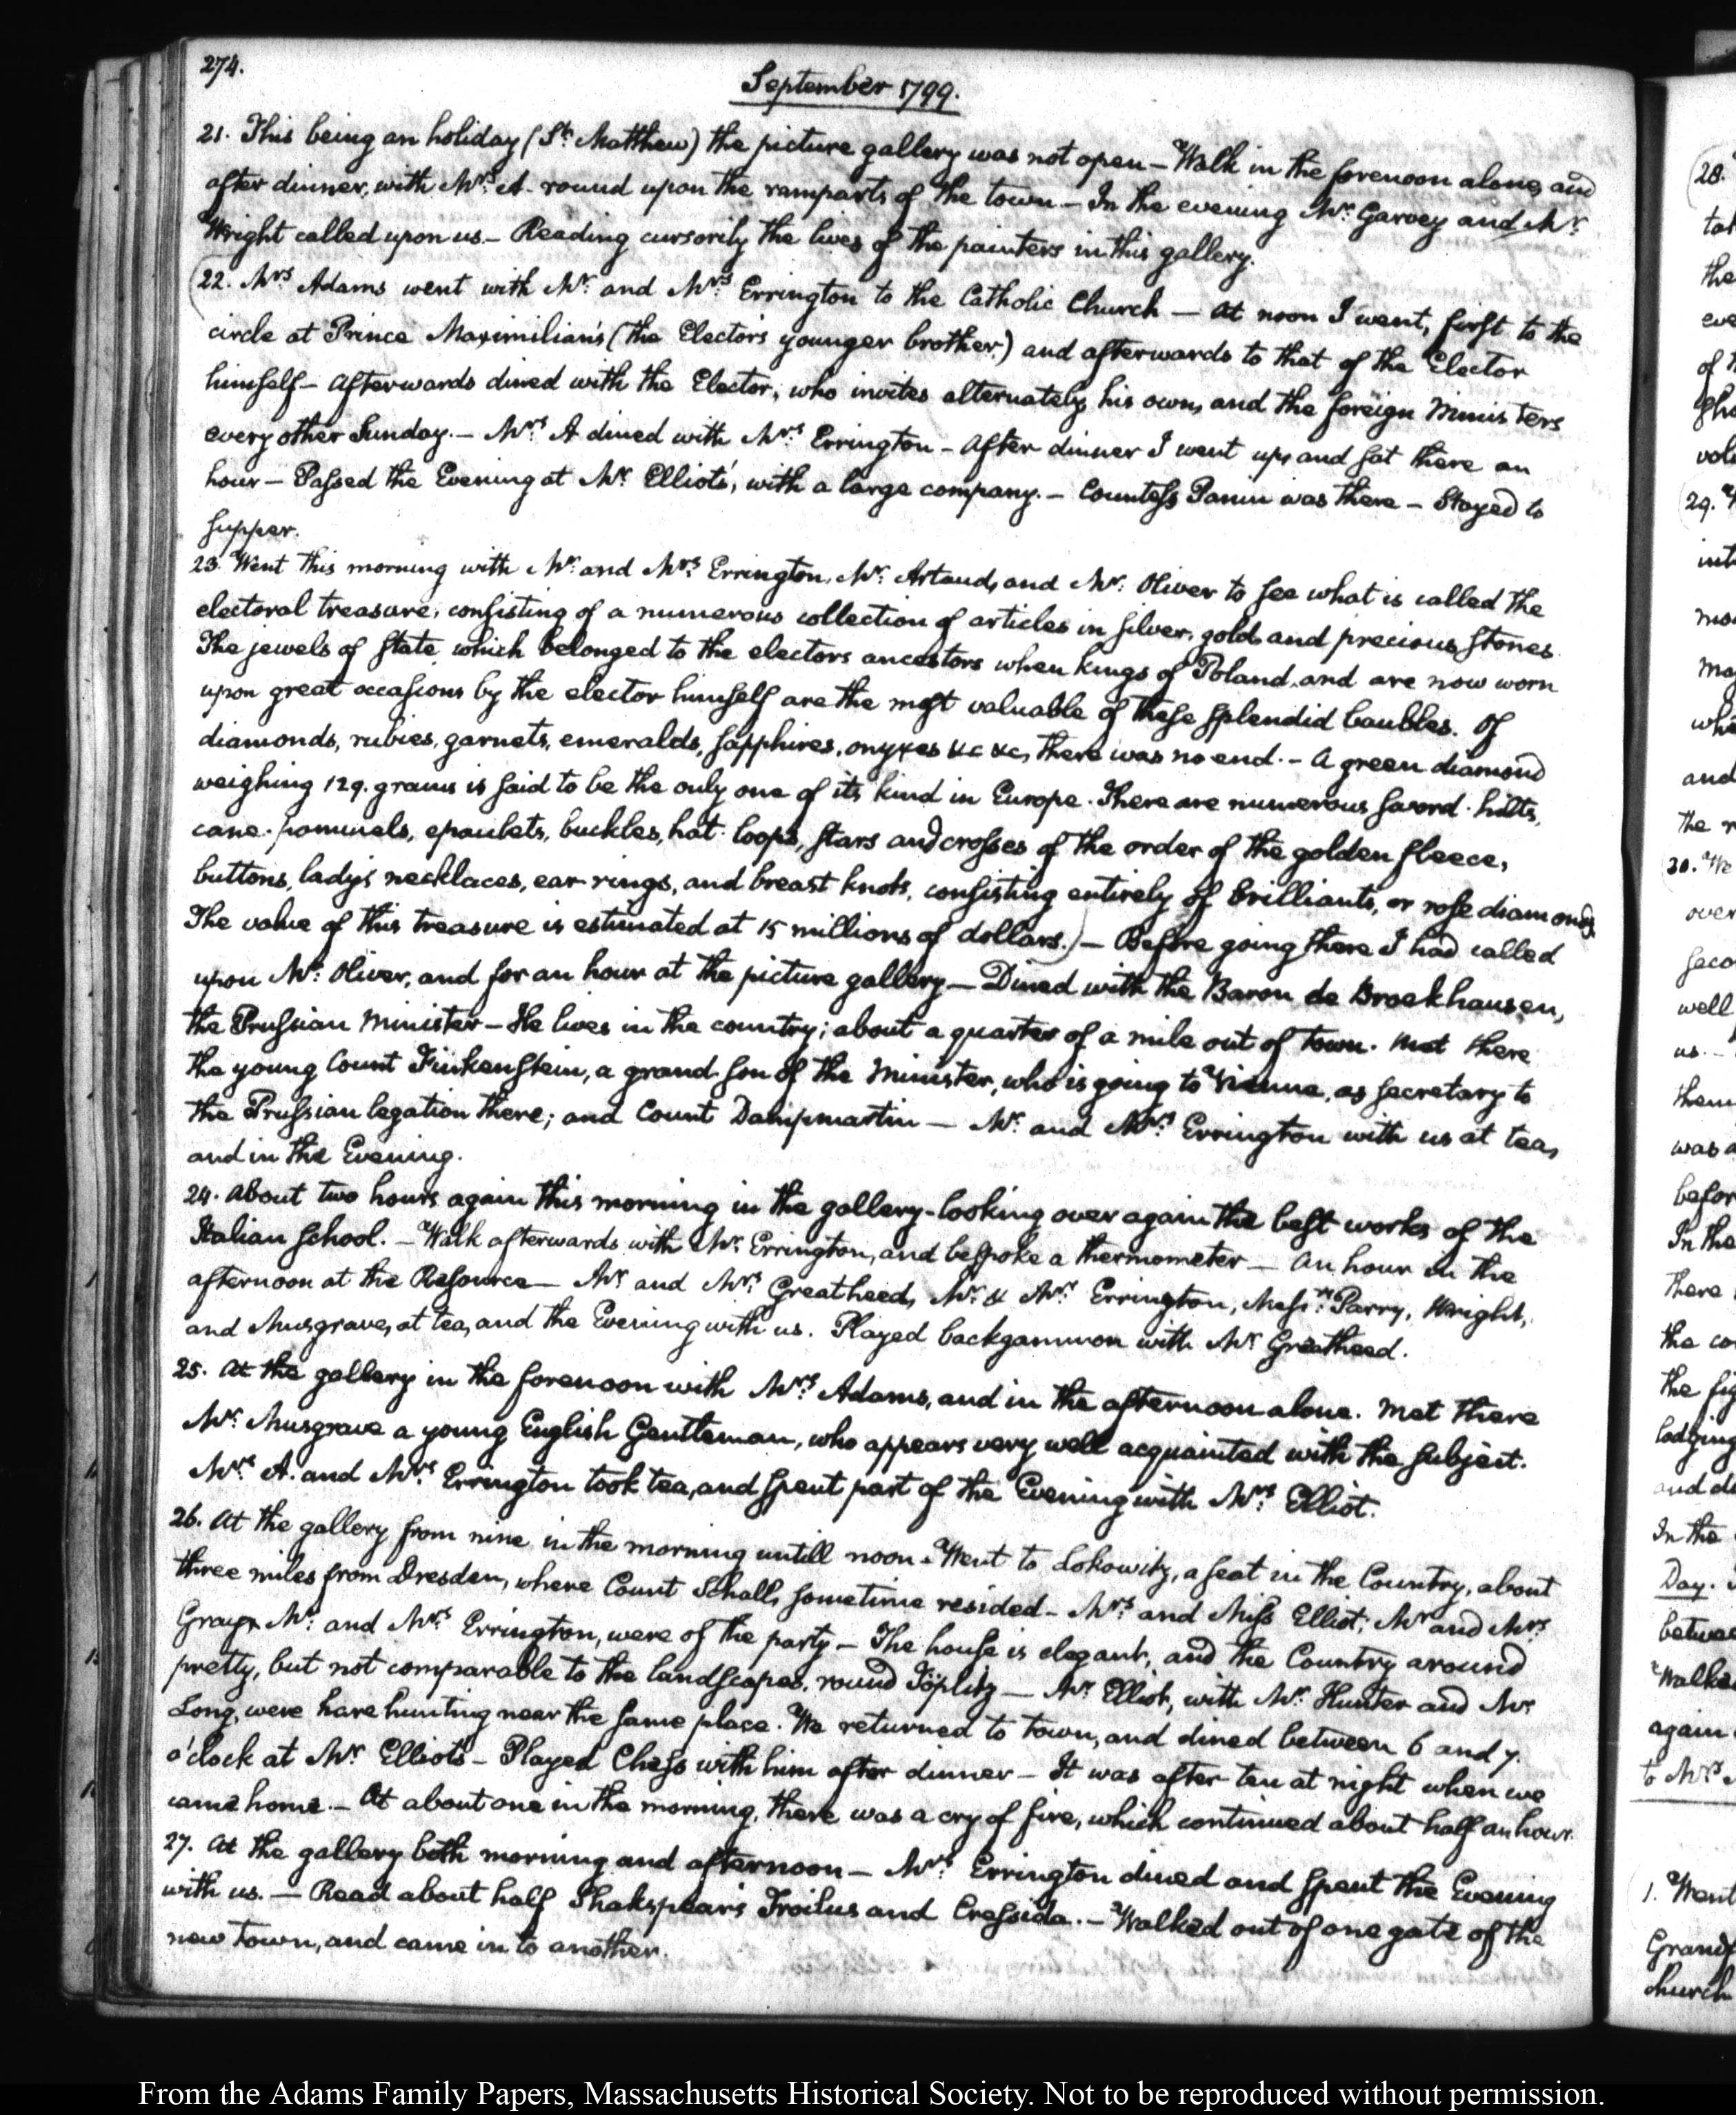 274.
September 1799.
21. This being an holiday (St. Matthew) the picture gallery was not open — Walk in the forenoon alone, and
after dinner, with Mrs. A. round upon the ramparts of the town — In the evening Mr. Garvey and Mr.
Wright called upon us. — Reading cursorily the lives of the painters in this gallery.
22. Mrs. Adams went with Mr. and Mrs. Errington to the Catholic Church — At noon I went, first to the
circle at Prince Maximilian's (the Elector's younger brother) and afterwards to that of the Elector
himself — Afterwards dined with the Elector, who invites alternately his own, and the foreign Ministers
every other Sunday. — Mrs. A dined with Mrs. Errington — After dinner I went up, and sat there an
hour — Passed the Evening at Mr. Elliot's, with a large company. — Countess Panin was there — Stayed to
supper.
23. Went this morning with Mr. and Mrs. Errington, Mr. Artaud, and Mr. Oliver to see what is called the
electoral treasure, consisting of a numerous collection of articles in silver, gold, and precious stones.
The jewels of state which belonged to the electors ancestors when kings of Poland, and are now worn
upon great occasions by the elector himself are the most valuable of these splendid baubles. Of
diamonds, rubies, garnets, emeralds, sapphires, onyxes &c &c, there was no end. — A green diamond
weighing 129. grains is said to be the only one of its kind in Europe. There are numerous sword-hilts,
cane-pommels, epaulets, buckles, hat-loops, stars and crosses of the order of the golden fleece,
buttons, lady's necklaces, ear-rings, and breast knots, consisting entirely of brilliants, or rose diamonds.
The value of this treasure is estimated at 15 millions of dollars.) — Before going there I had called
upon Mr. Oliver, and for an hour at the picture gallery — Dined with the Baron de Brockhausen,
the Prussian Minister — He lives in the country; about a quarter of a mile out of town. Met there
the young Count Finkenstein, a grand son of the Minister, who is going to Vienna, as secretary to
the Prussian legation there; and Count Dampmartin — Mr. and Mrs. Errington with us at tea,
and in the Evening.
24. About two hours again this morning in the gallery — looking over again the best works of the
Italian school. — Walk afterwards with Mr. Errington, and bespoke a thermometer — An hour in the
afternoon at the Resource — Mr. and Mrs. Greatheed, Mr. & Mrs. Errington, Messrs. Parry, Wright,
and Musgrave, at tea, and the Evening with us. Played backgammon with Mr. Greatheed.
25. At the gallery in the forenoon with Mrs. Adams, and in the afternoon alone. Met there
Mr. Musgrave a young English Gentleman, who appears very well acquainted with the subject.
Mrs. A. and Mrs. Errington took tea, and spent part of the Evening with Mrs. Elliot.
26. At the gallery from nine in the morning untill noon — Went to Lokowitz, a seat in the Country, about
three miles from Dresden, where Count Schall, sometime resided — Mrs. and Miss Elliot, Mr and Mrs.
Gray, Mr. and Mrs. Errington, were of the party — The house is elegant, and the Country around
pretty, but not comparable to the landscapes, round Töplitz — Mr. Elliot, with Mr. Hunter and Mr.
Long, were hare hunting near the same place. We returned to town, and dined between 6 and 7.
o'clock at Mr. Elliot's — Played Chess with him after dinner — It was after ten at night when we
came home. — At about one in the morning, there was a cry of fire, which continued about half an hour.
27. At the gallery both morning and afternoon — Mrs. Errington dined and spent the Evening
with us. — Read about half Shakspear's Troilus and Cressida. — Walked out of one gate of the
new town, and came in to another.
28.
29.
30. We
1. Went
From the Adams Family Papers, Massachusetts Historical Society. Not to be reproduced without permission.